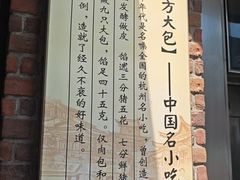 方大包】——中国名小吃
年代是名噪全国的杭州名小吃。曾创造
发酵做皮 馅选三分猪五花 七分鲜猪
做九只大包,馅足四十五克。仅肉包和
例,造就了经久不衰的好味道。